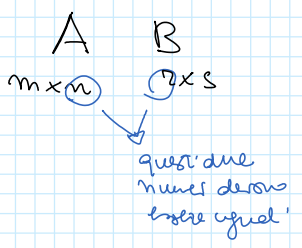 A B
m×n r×s
questi due
numeri devono
essere uguali